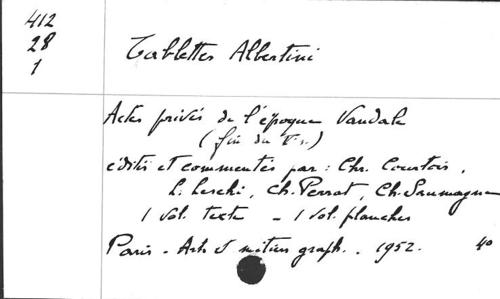 412
28
1
Tablettes Albertini
Actes privés de l'époque Vandale
(fin du Ve s.)
édités et commentés par : Chr. Courtois,
L. Leschi, Ch. Perrat, Ch. Saumagne
1 vol. texte - 1 vol. planches
Paris - Arts et métiers graph. - 1952. 4o